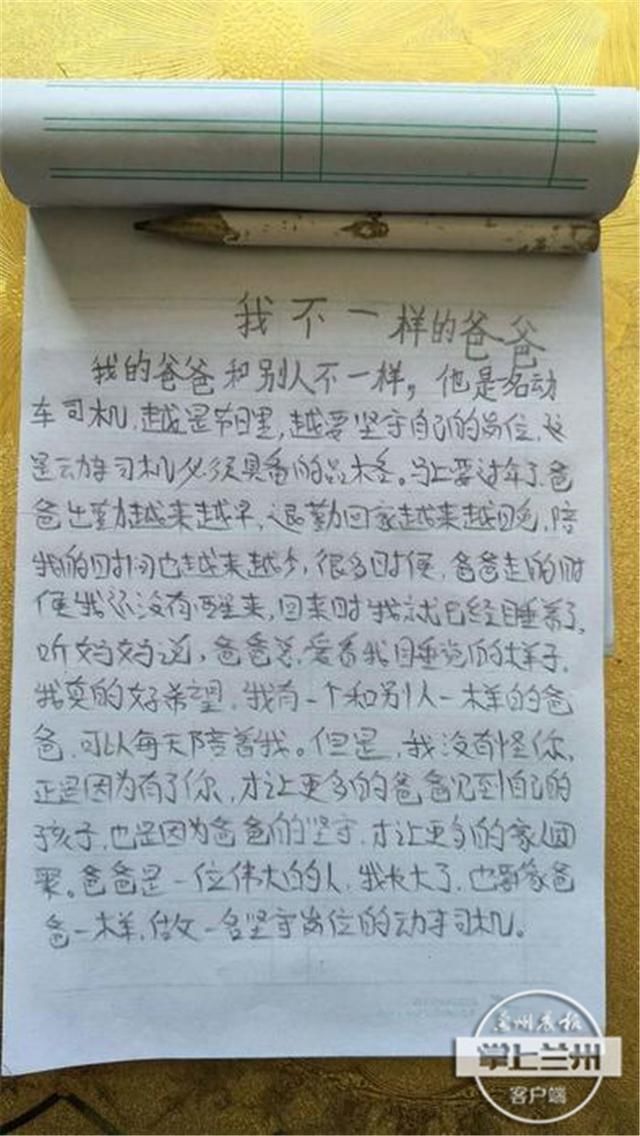 我不一样的爸爸
我的爸爸和别人不一样，他是名动
车司机，越是节日里，越要坚守自己的岗位，这
是动车司机必须具备的品格。马上要过年了，爸
爸出勤越来越早，退勤回家越来越晚，陪
我的时间也越来越少，很多时候，爸爸走的时
候我还没有醒来，回来时我就已经睡着了，
听妈妈说，爸爸总爱看我睡觉的样子，
我真的好希望，我有一个和别人一样的爸
爸，可以每天陪着我。但是，我没有怪你，
正是因为有了你，才让更多的爸爸见到自己的
孩子，也是因为爸爸的坚守，才让更多的家人团
聚。爸爸是一位伟大的人，我长大了，也要像爸
爸一样，做一名坚守岗位的动车司机。
兰州晨报
掌上兰州
客户端